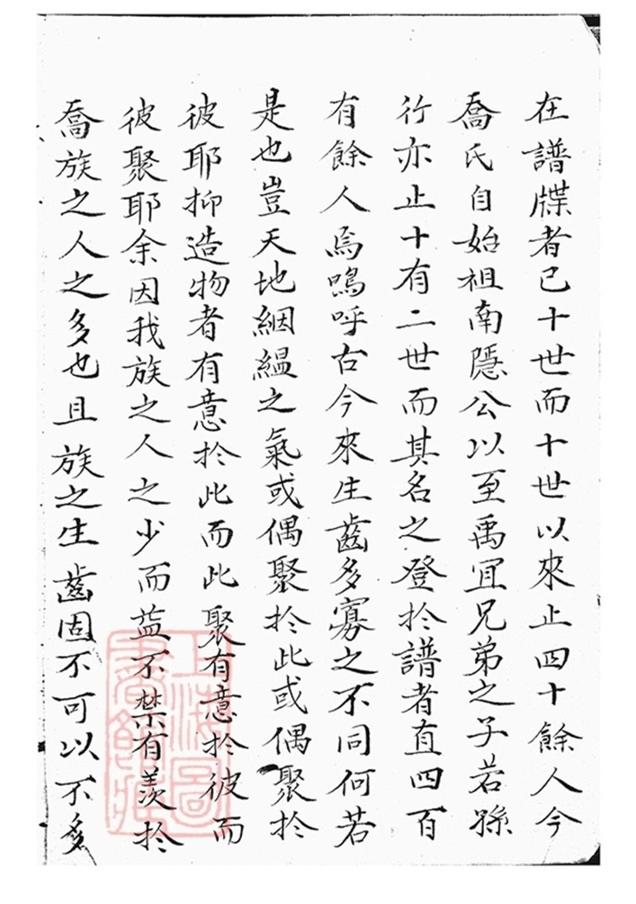 在譜牒者已十世而十世以來止四十餘人今
喬氏自始祖南隱公以至禹宜兄弟之子若孫
行亦止十有二世而其名之登於譜者直四百
有餘人焉嗚呼古今來生齒多寡之不同何若
是也豈天地絪縕之氣或偶聚於此或偶聚於
彼耶抑造物者有意於此而此聚有意於彼而
彼聚耶余因我族之人之少而益不禁有羨於
喬族之人之多也且族之生齒固不可以不多
上海圖書館藏